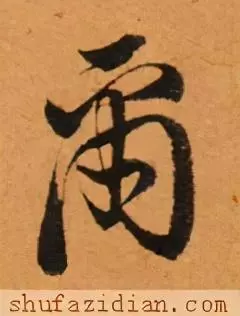 爾
shufazidian.com